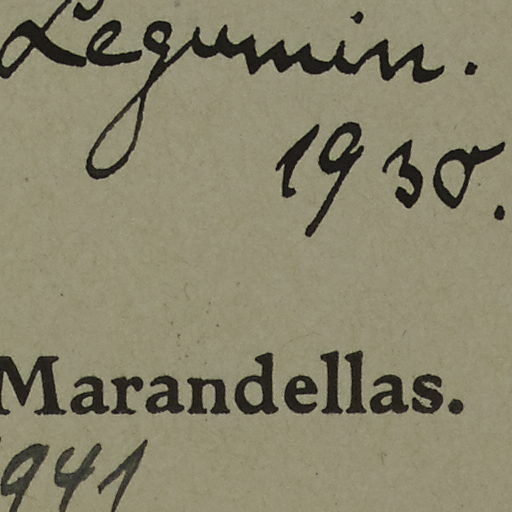 Legumin.
1930.
Marandellas.
1941